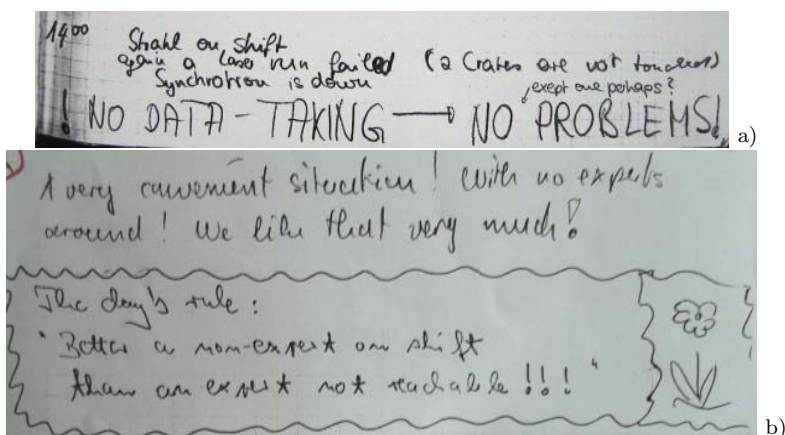 1400
Strahl on shift
again a laser run failed (2 Crates are not touched)
Synchrotron is down
, exept one perhaps?
! NO DATA - TAKING → NO PROBLEMS!
a)
A very convenient situation! With no experts
around! We like that very much!
The day's rule:
"Better a non-expert on shift
than an expert not reachable!!!"
b)